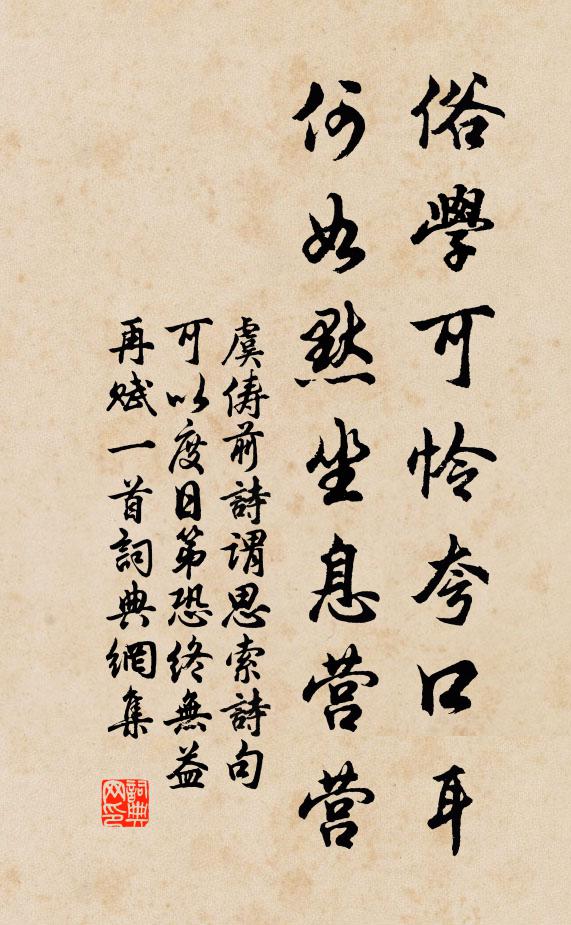 俗學可怜夸口耳
何如默坐息营营
虞儔前詩謂思索詩句
可以度日第恐終無益
再赋一首詞典網集
詞典网印